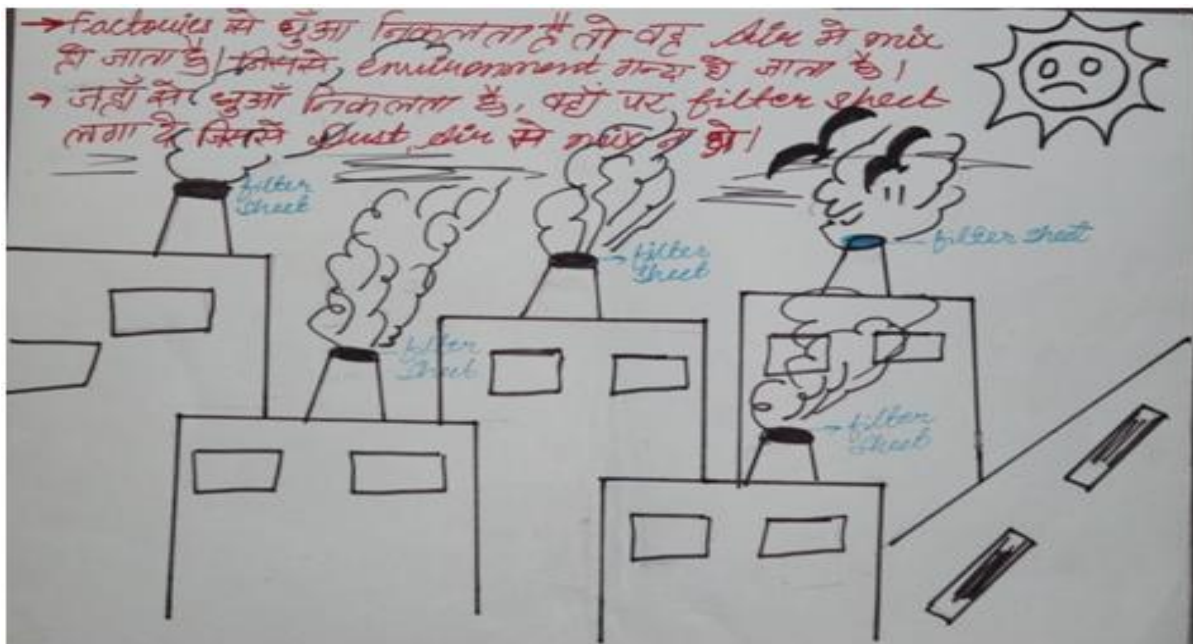 → Factories से धुँआ निकलता है तो वह Air में mix
हो जाता है। जिससे Environment गन्दा हो जाता है।
→ जहाँ से धुआँ निकलता है, वहाँ पर filter sheet
लगा दे जिससे Dust, Air में mix न हो।
filter
sheet
filter
sheet
→ filter
sheet
filter sheet
→ filter
sheet